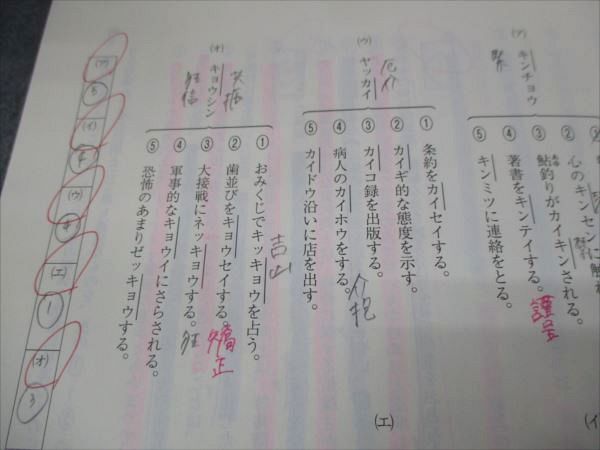 (ア)
キンチョウ
緊
② 心のキンセンに触れ
③ 鮎釣りがカイキンされる。
④ 著書をキンテイする。
謹呈
⑤ キンミツに連絡をとる。
(イ
(ウ)
ヤッカイ
厄介
① 条約をカイセイする。
② カイギ的な態度を示す。
③ カイコ録を出版する。
④ 病人のカイホウをする。
介抱
⑤ カイドウ沿いに店を出す。
(エ)
(オ)
キョウシン
共振
狂信
① おみくじでキッキョウを占う。
② 歯並びをキョウセイする。
矯正
③ 大接戦にネッキョウする。
狂
④ 軍事的なキョウイにさらされる。
⑤ 恐怖のあまりゼッキョウする。
(ア)
5
(イ)
4
(ウ)
4
(エ)
1
(オ)
3